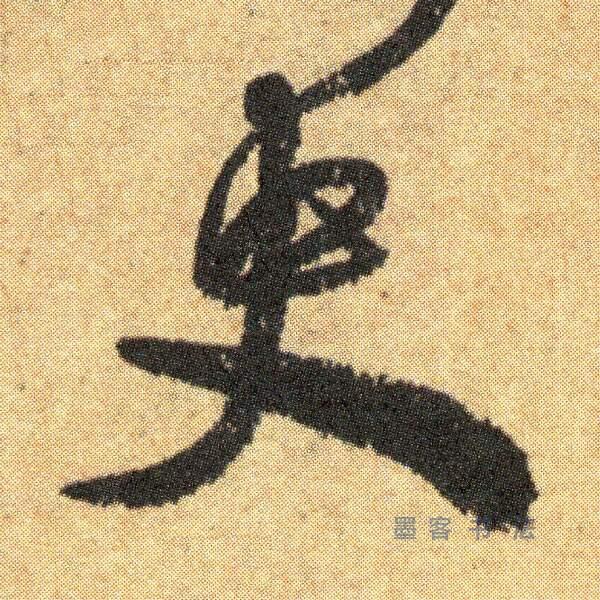 叟
墨客书法